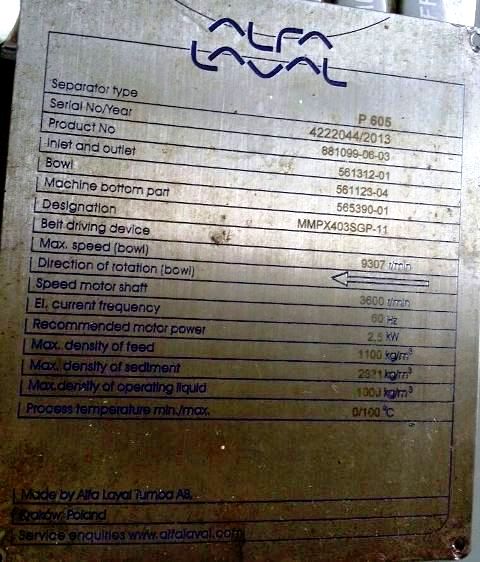 ALFA
LAVAL
Separator type P 605
Serial No/Year 4222044/2013
Product No 881099-06-03
Inlet and outlet 561312-01
Bowl 561123-04
Machine bottom part 565390-01
Designation MMPX403SGP-11
Belt driving device
Max. speed (bowl) 9307 r/min
Direction of rotation (bowl)
Speed motor shaft 3600 r/min
El. current frequency 60 Hz
Recommended motor power 2,5 kW
Max. density of feed 1100 kg/m³
Max. density of sediment kg/m³
Max.density of operating liquid 1000 kg/m³
Process temperature min./max. 0/100 °C
Made by Alfa Laval Tumba AB,
Kraków Poland
Service enquiries www.alfalaval.com